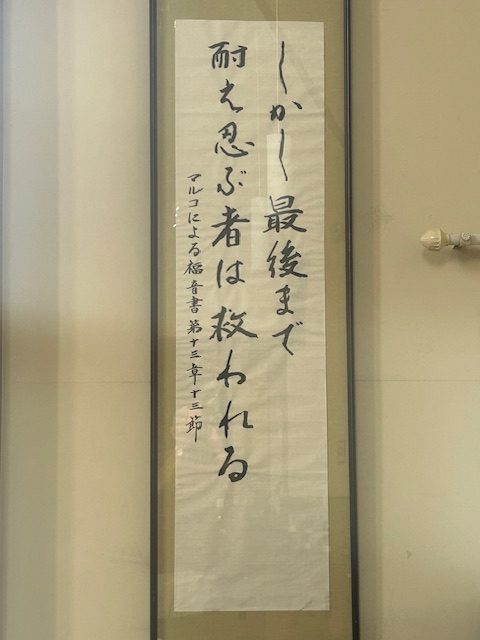 しかし最後まで
耐え忍ぶ者は救われる
マルコによる福音書第十三章十三節